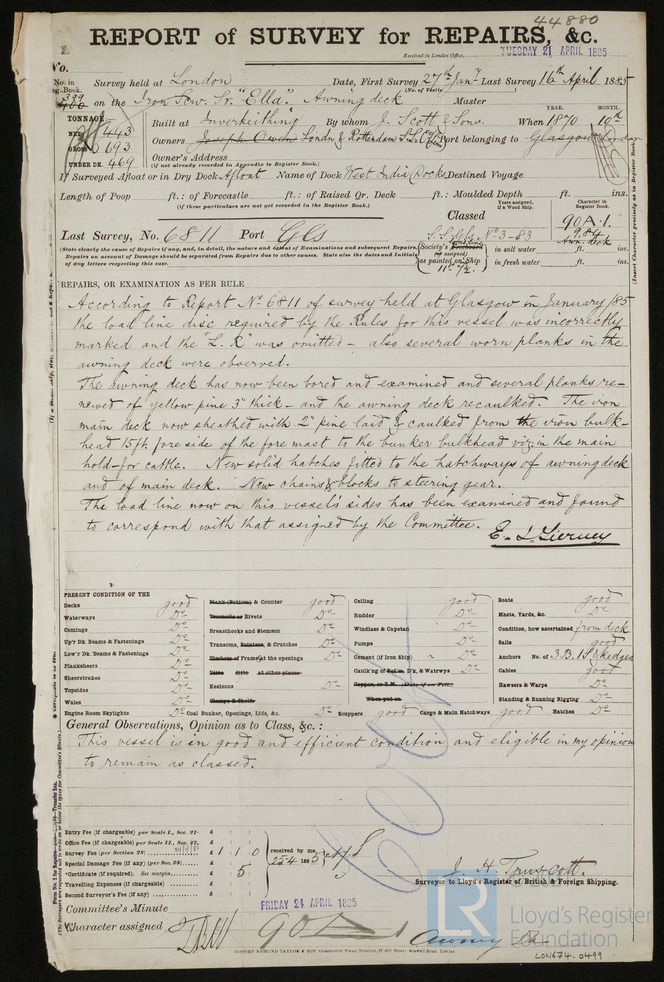 44880
REPORT of SURVEY for REPAIRS, &c.
Received in London Office, TUESDAY 21 APRIL 1885
No.
No. in Reg. Book. Survey held at London Date, First Survey 27th Jany Last Survey 16th April 1885
(No. of Visits)
on the Iron Scw. Sr. "Ella". Awning deck Master
TONNAGE YEAR. MONTH.
NET 443 Built at Inverkeithing By whom J. Scott & Sons. When 1870 10th
GROSS 693 Owners Joseph Owen London & Rotterdam Port belonging to Glasgow London
UNDER DK. 469 Owner's Address
(if not already recorded in Appendix to Register Book.)
If Surveyed Afloat or in Dry Dock Afloat Name of Dock West India Docks Destined Voyage
Length of Poop ft.: of Forecastle ft.: of Raised Qr. Deck ft.: Moulded Depth ft. ins.
(if these particulars are not yet recorded in the Register Book.)
Years assigned, if a Wood Ship. Character in Register Book.
Classed 90A.1.
Last Survey, No. 6811 Port Gls No 3-83 9.84
Awn. deck
(State clearly the cause of Repairs if any, and, in detail, the nature and extent of Examinations and subsequent Repairs.
Repairs on account of Damage should be separated from Repairs due to other causes. State also the dates and Initials
of any letters respecting this case.
(Society's Freeboard (if assigned) as painted on Ship
in salt water ft. in.
in fresh water ft. in.
REPAIRS, OR EXAMINATION AS PER RULE
According to Report No 6811 of survey held at Glasgow in January /85
the load line disc required by the Rules for this vessel was incorrectly
marked and the "L.R" was omitted - also several worn planks in the
awning deck were observed.
The awning deck has now been bored and examined and several planks re-
newed of yellow pine 3" thick - and the awning deck recaulked. The iron
main deck now sheathed with 2" pine laid & caulked from the iron bulk-
head 15ft. fore side of the fore mast to the bunker bulkhead viz; in the main
hold - for cattle. New solid hatches fitted to the hatchways of awning deck
and of main deck. New chains & blocks to steering gear.
The load line now on this vessel's sides has been examined and found
to correspond with that assigned by the Committee.
E. J. Tierney
PRESENT CONDITION OF THE
Decks good
Waterways Do
Comings Do
Up'r Dk. Beams & Fastenings Do
Low'r Dk. Beams & Fastenings Do
Planksheers Do
Sheerstrakes Do
Topsides Do
Wales Do
Engine Room Skylights Do
Plank (Bottom) & Counter good
Treenails or Rivets Do
Breasthooks and Stemson Do
Transoms, Pointers, & Crutches Do
Timbers of Frame at the openings Do
Ditto ditto At other places
Keelsons Do
Clamps & Shelfs
Coal Bunker, Openings, Lids, &c. Do
Ceiling good
Rudder Do
Windlass & Capstan Do
Pumps Do
Cement (if Iron Ship) Do
Caulking of Bottom, D'k, & Waterways Do
Copper, or Y.M. (State if on Felt)
When put on
Scuppers good Cargo & Main Hatchways good Hatches Do
Boats good
Masts, Yards, &c. Do
Condition, how ascertained from deck
Sails good
Anchors No. of 3.B. 1S 2 Kedges
Cables good
Hawsers & Warps Do
Standing & Running Rigging Do
General Observations, Opinion as to Class, &c.:
This vessel is in good and efficient condition and eligible in my opinion
to remain as classed.
Entry Fee (if chargeable) per Scale I., Sec. 27. £ : :
Office Fee (if chargeable) per Scale II., Sec. 27. £ : :
Survey Fee (per Section 28) £ 1 1 0
Special Damage Fee (if any) (per Sec. 28) £ : :
*Certificate (if required). See margin. £ 5
Travelling Expenses (if chargeable) £ : :
Second Surveyor's Fee (if any) £ : :
received by me,
25.4 1885
J. H Truscott.
Surveyor to Lloyd's Register of British & Foreign Shipping.
Committee's Minute FRIDAY 24 APRIL 1885
Character assigned 90A1
Awning Dk
LR Lloyd's Register
Foundation
LON674-0499